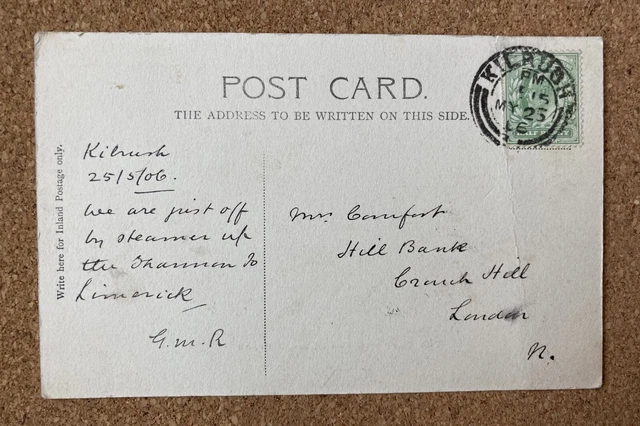 POST CARD.
THE ADDRESS TO BE WRITTEN ON THIS SIDE.
KILRUSH
PM
MY 25
Write here for Inland Postage only.
Kilrush
25/5/06.
We are just off
by steamer up
the Shannon to
Limerick
G.M.R
Mrs Comfort
Hill Bank
Crouch Hill
London
N.